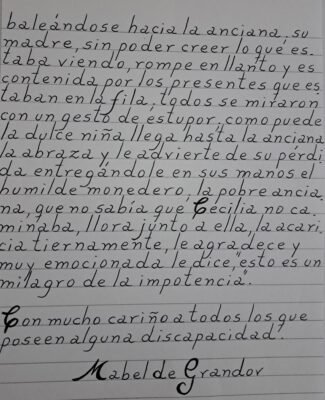 baleándose hacia la anciana, su
madre, sin poder creer lo que es-
taba viendo, rompe en llanto y es
contenida por los presentes que es
taban en la fila, todos se miraron
con un gesto de estupor, como puede
la dulce niña llega hasta la anciana
la abraza y le advierte de su perdi-
da entregándole en sus manos el
humilde monedero, la pobre ancia
na, que no sabía que Cecilia no ca-
minaba, llora junto a ella, la acari-
cia tiernamente, le agradece y
muy emocionada le dice, "esto es un
milagro de la impotencia".
Con mucho cariño a todos los que
poseen alguna discapacidad".
Mabel de Grandov